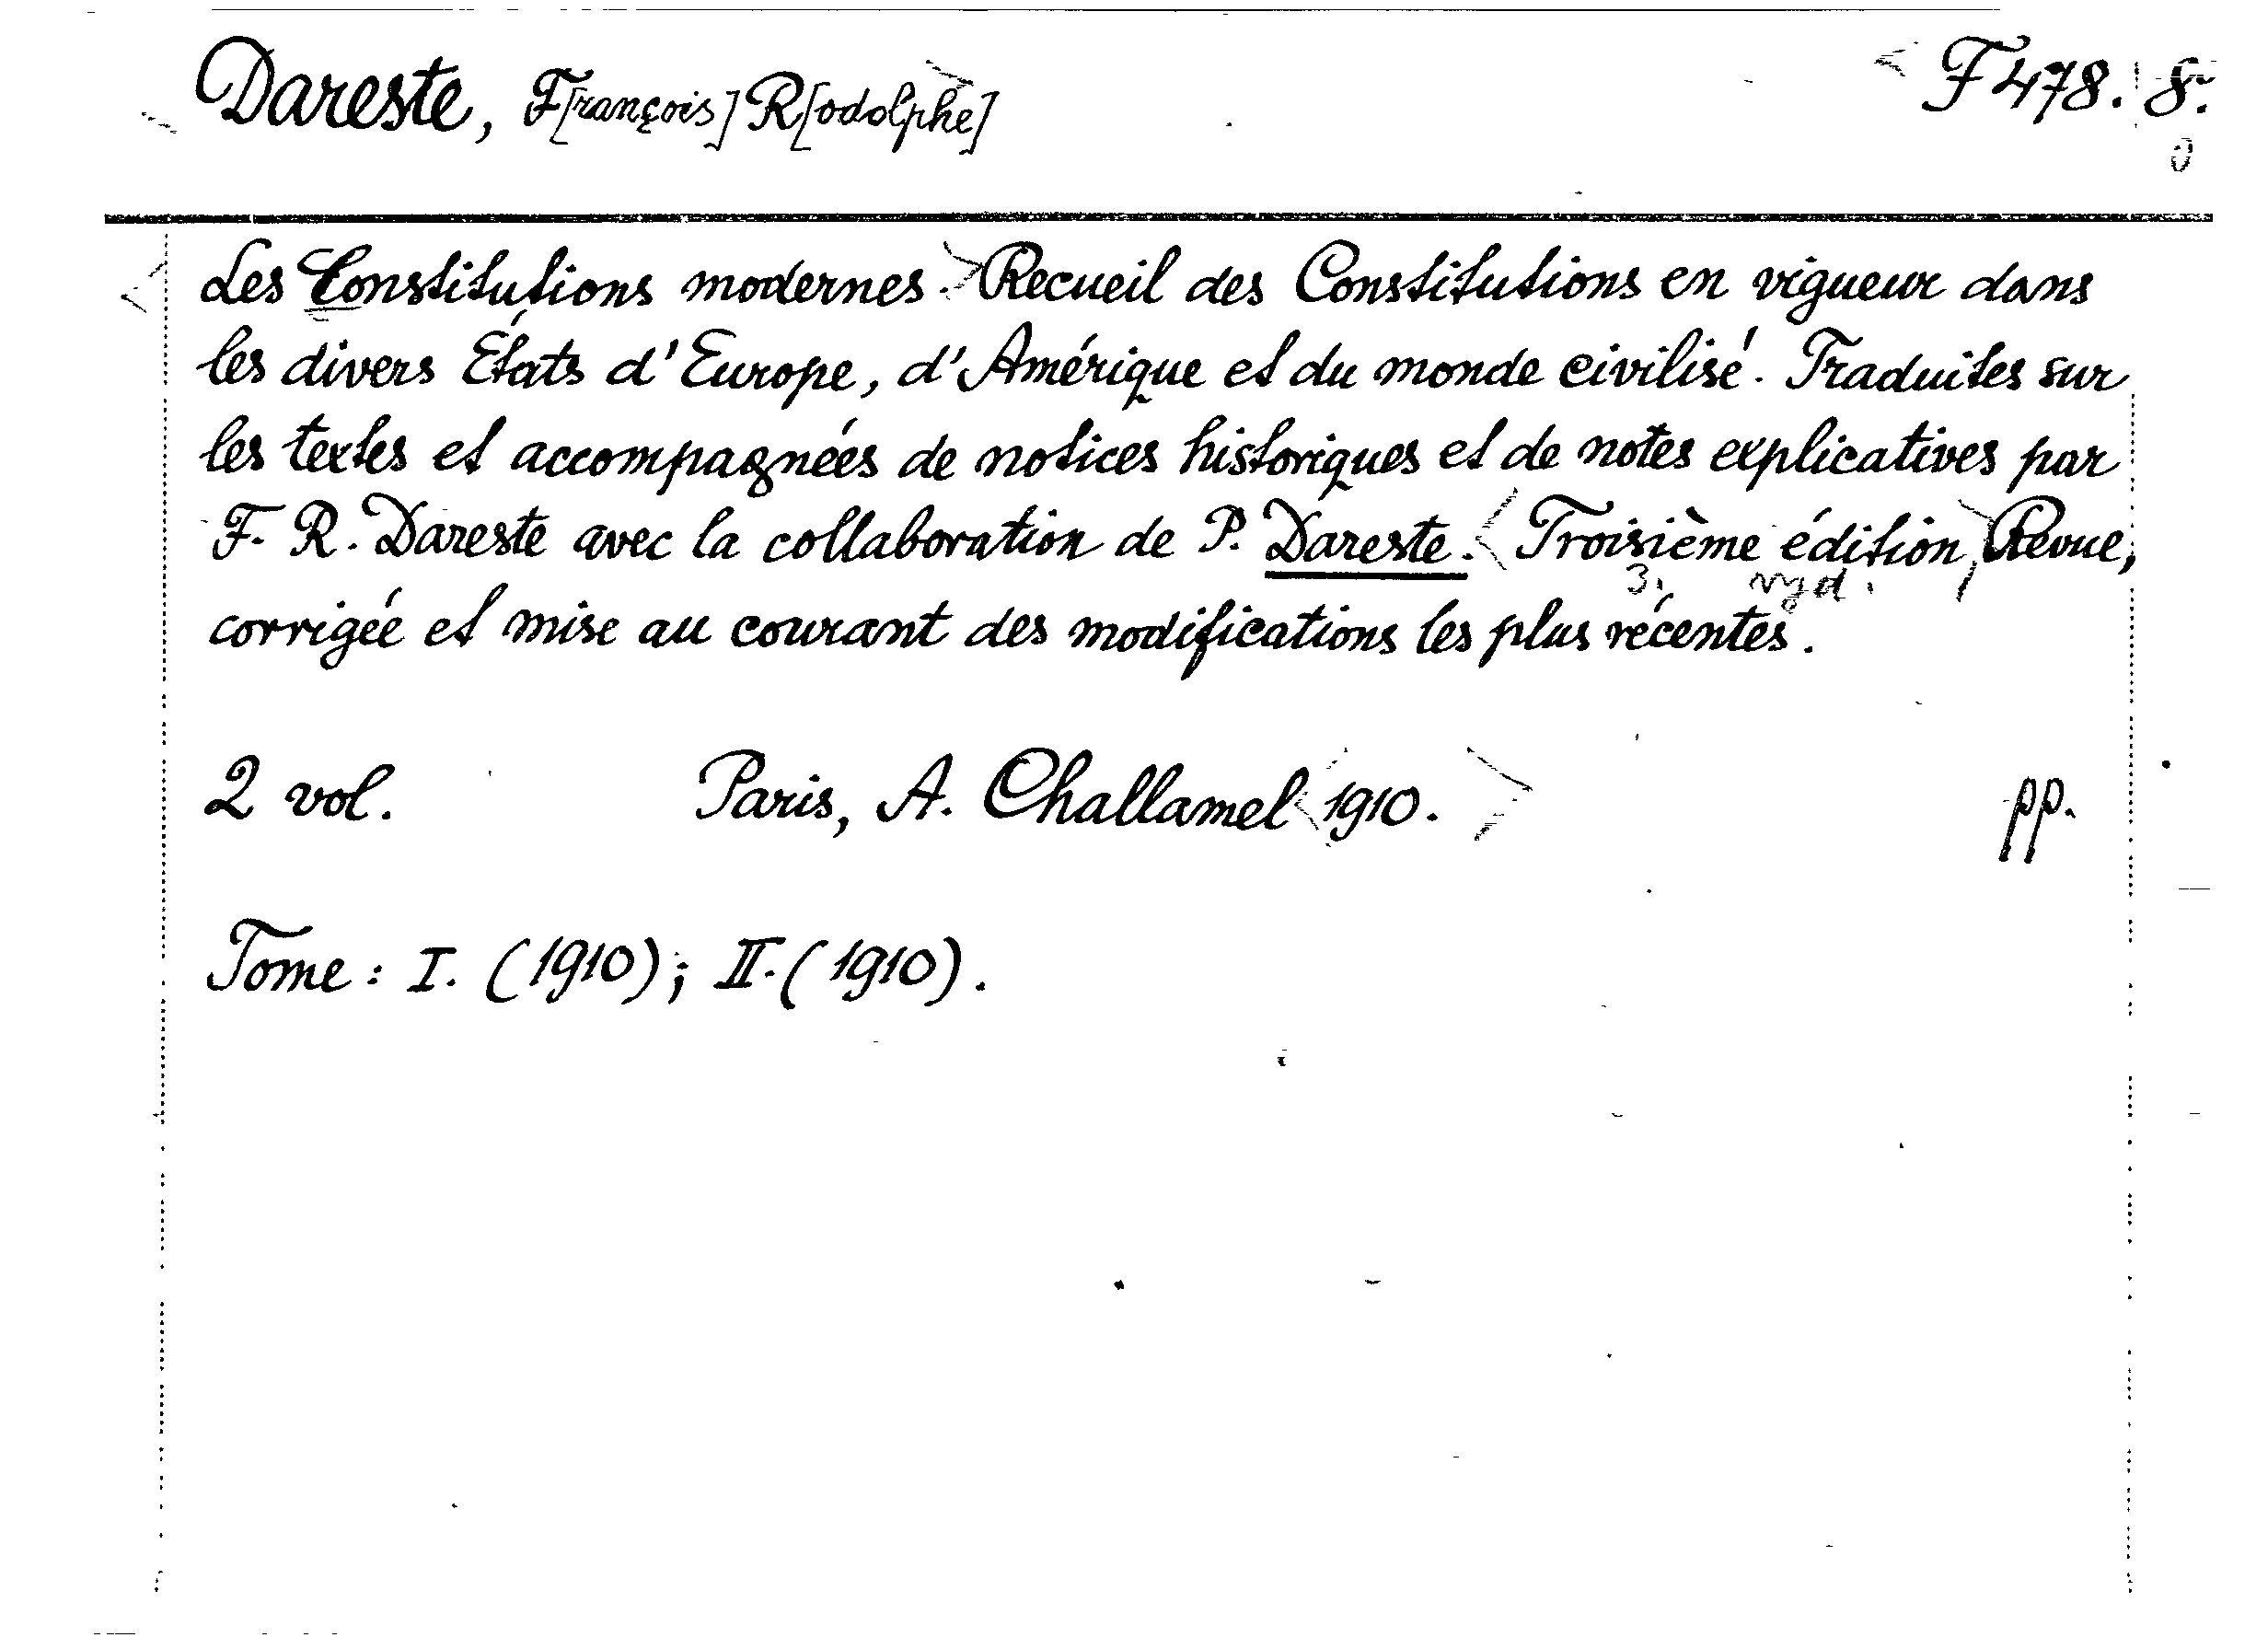 Dareste, F[rançois] R[odolphe] F 478. 8.
Les Constitutions modernes. Recueil des Constitutions en vigueur dans
les divers États d'Europe, d'Amérique et du monde civilisé. Traduites sur
les textes et accompagnées de notices historiques et de notes explicatives par
F. R. Dareste avec la collaboration de P. Dareste. Troisième édition, Revue,
3. vyd.
corrigée et mise au courant des modifications les plus récentes.
2 vol. Paris, A. Challamel 1910. pp.
Tome: I. (1910); II. (1910).